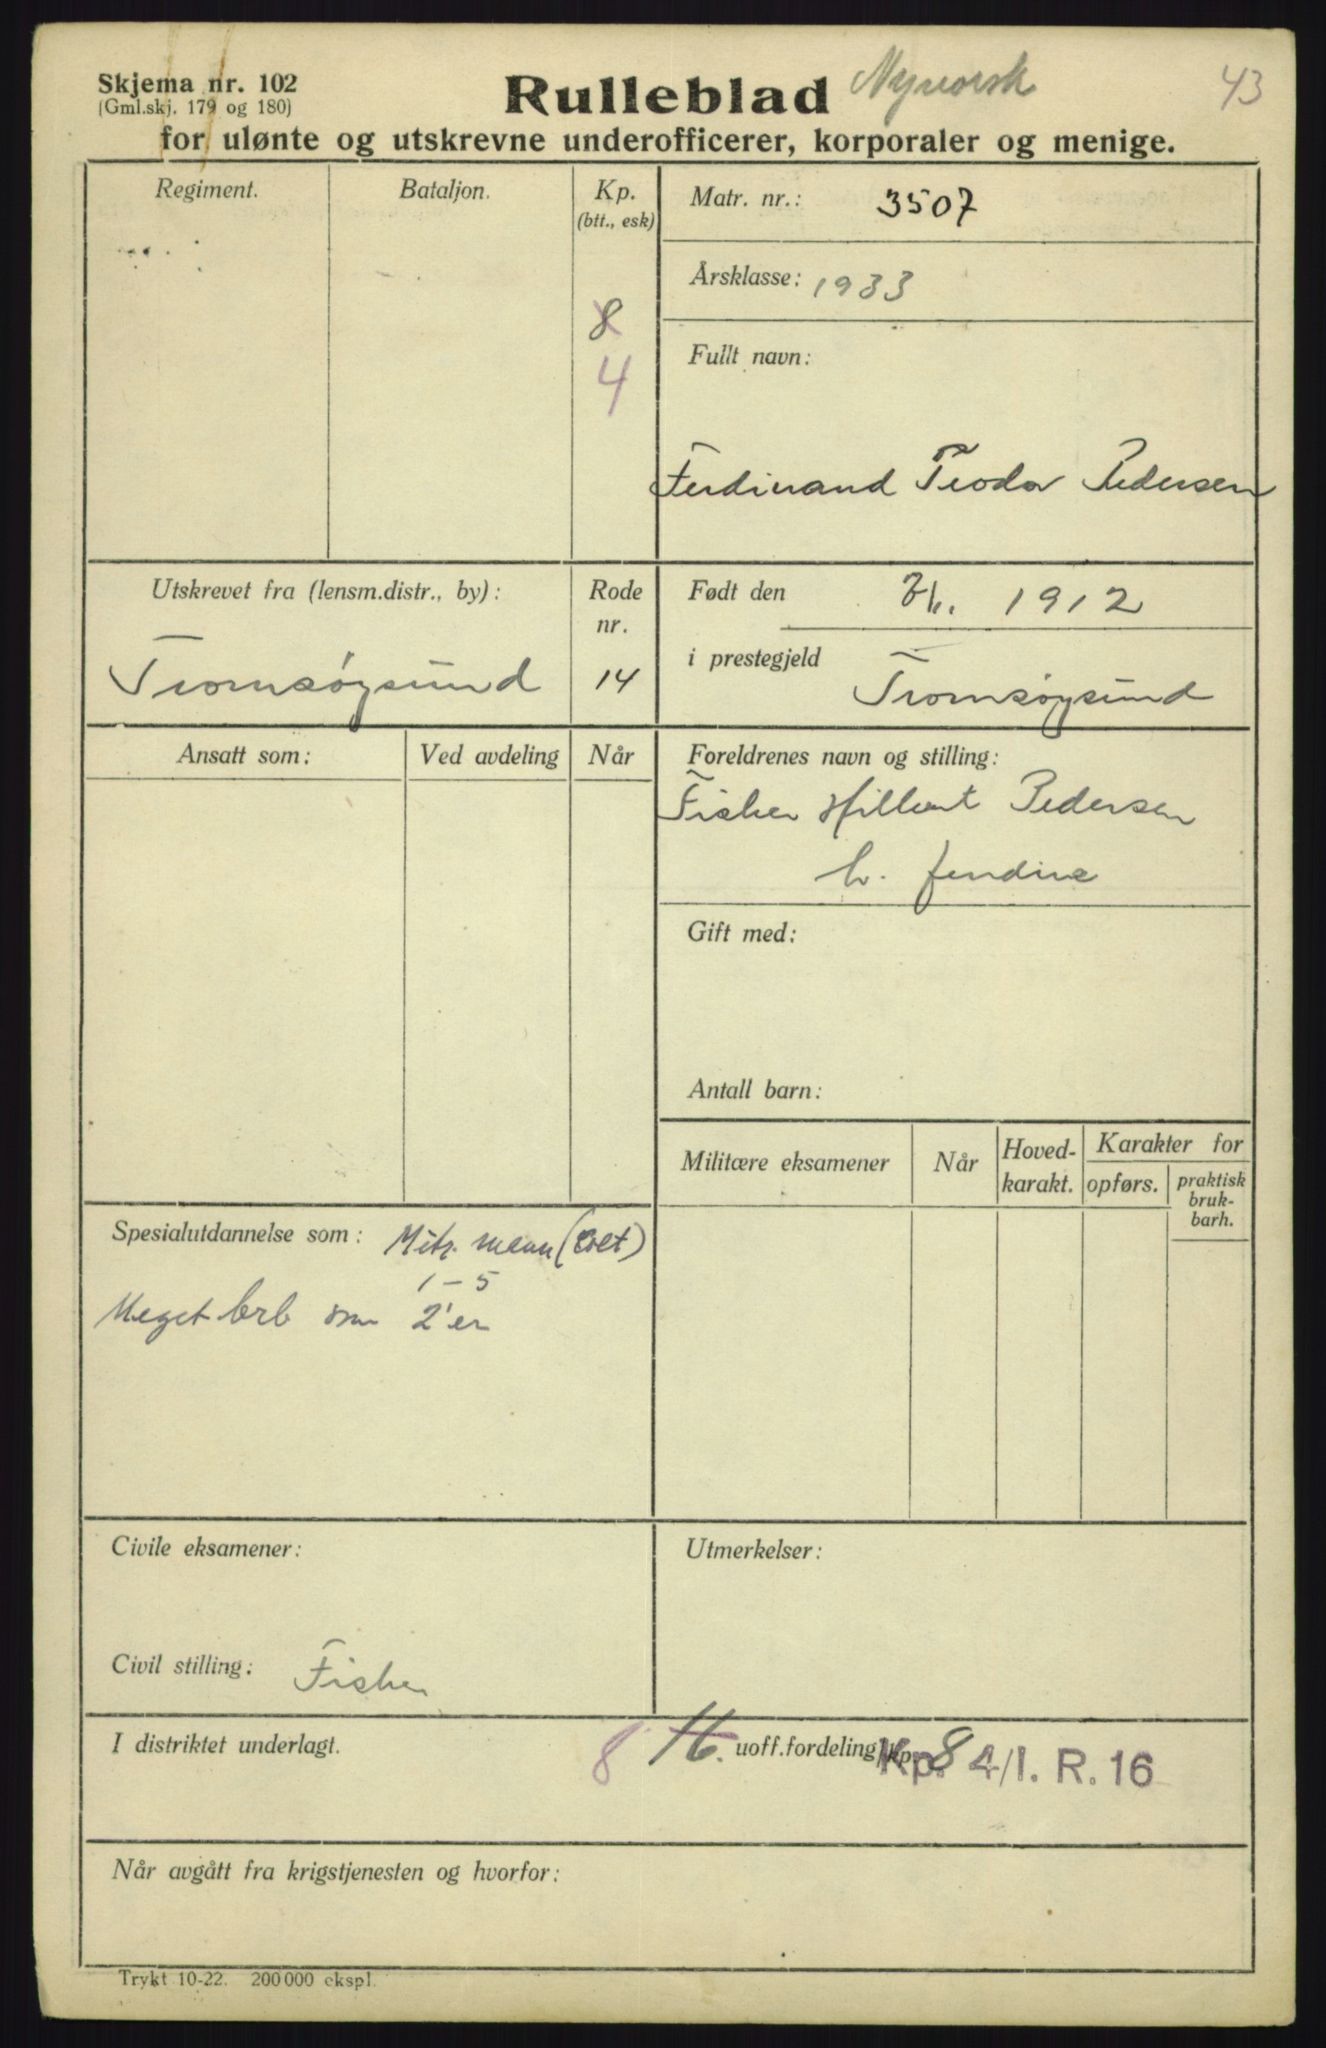 Skjema nr. 102
(Gml.skj. 179 og 180)
Rulleblad Nynorsk 43
for ulønte og utskrevne underofficerer, korporaler og menige.
Regiment. Bataljon. Kp. (btt., esk)
8
4
Matr. nr.: 3507
Årsklasse: 1933
Fullt navn:
Ferdinand Teodor Pedersen
Utskrevet fra (lensm.distr., by):
Tromsøysund
Rode nr.
14
Født den 1912
i prestegjeld Tromsøysund
Ansatt som: Ved avdeling Når
Foreldrenes navn og stilling:
Fisker Hilbert Pedersen
h.
Gift med:
Antall barn:
Militære eksamener Når Hoved-karakt. Karakter for
opførs. praktisk bruk-barh.
Spesialutdannelse som: Mitr. mann (Colt)
1-5
Meget brb som 2'er
Civile eksamener:
Civil stilling: Fisker
Utmerkelser:
I distriktet underlagt. 8 16. uoff.fordeling/kp. 8
Kp. 4/I. R. 16
Når avgått fra krigstjenesten og hvorfor:
Trykt 10-22. 200 000 ekspl.